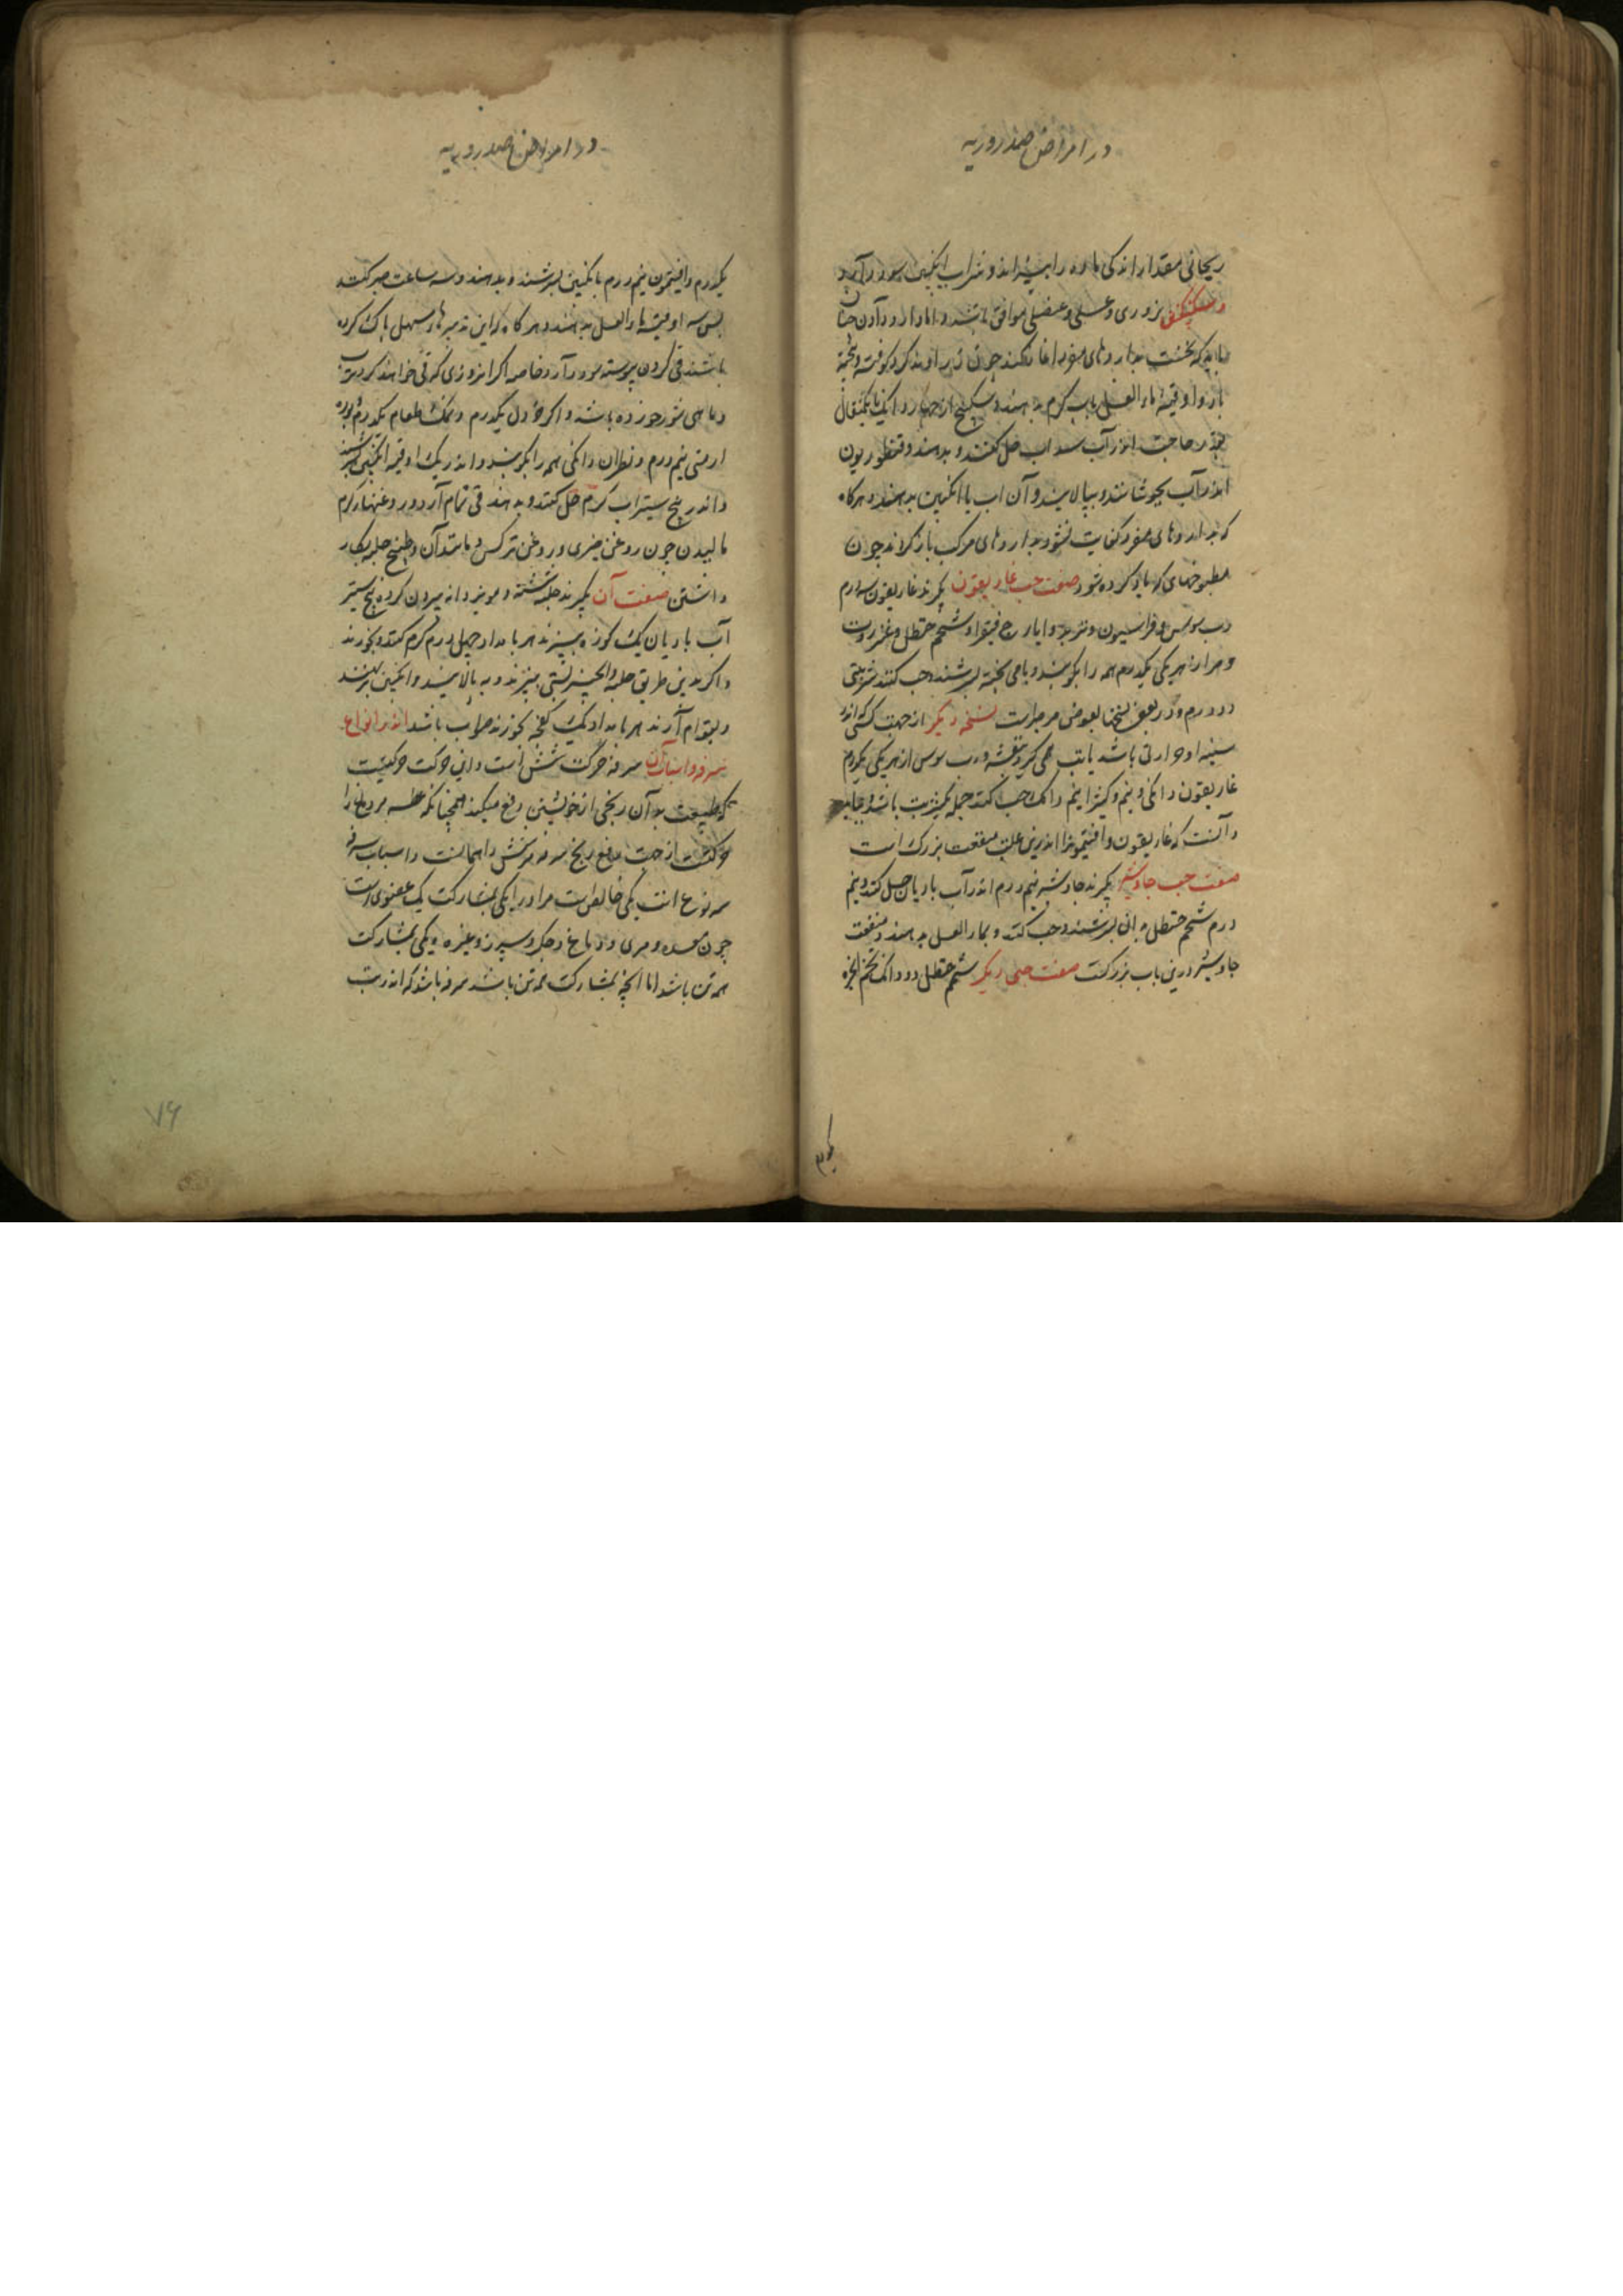 در امراض صدروریه
ریحانی مقدار اندکی ماده را بپزاند و شراب انگبین سود دارد
و سکنگبین بزوری و عسلی و عنصلی موافق باشد و اما دارو دادن چنان
باید که نخست بداروهای مفرد آغاز کنند چون زراوند گرد کوفته و پخته
باز و اوقیه ماء العسل باب گرم بدهند و سکبینج از چهار دانگ تا یکمثقال
بقدر حاجت اندر آب سداب حل کنند و بدهند و قنطوریون
اندر آب بجوشانند و بپالایند و آن آب با انگبین بدهند و هرگاه
که بداروهای مفرد کفایت نشود بداروهای مرکب بازگراند چون
مطبوخهای که یاد کرده شود صفت حب غاریقون بگیرند غاریقون سه درم
رب سوس و فراسیون و تربد و ایارج فیقرا و شحم حنظل و عنزروت
و مر از هر یکی یکدرم همه را بکوبند و بامی پخته بسرشند و حب کنند شربتی
دو درم و در بعضی نسختها بعوض مر مدارست نسخه دیگر از جهت کسی اندر
سینه او حرارتی باشد یا تب همی گیرد بنفشه و رب سوس از هر یکی یکدرم
غاریقون دانگی و نیم و کتیرا نیم دانگ حب کنند جمله یکشربت باشد و بباید
دانست که غاریقون و افتیمون را اندرین علت منفعت بزرگ است
صفت حب جاوشیر بگیرند جاوشیر نیم درم اندر آب بادیان حل کنند و نیم
درم شحم حنظل بدان بسرشند و حب کنند و بماء العسل بدهند و منفعت
جاوشیر درین باب بزرگست صفت حبی دیگر شحم حنظل دو دانگ تخم انجره
یکدرم
در امراض صدروریه
یکدرم و افیتمون نیم درم بانگبین بسرشند و بدهند و سه ساعت صبر کنند
پس سه اوقیه ماء العسل بدهند و هرگاه که این تدبیرها و سهل پاک کرده
باشند قی کردن پیوسته سود دارد خاصه اگر انروزی که قی خواهند کرد ترب
و ماهی شور خورده باشد و اگر خردل یکدرم و نمک طعام یکدرم و بوره
ارمنی نیم درم و نطران دانگی همه را بکوبند و اندر یک اوقیه انگبین بسرشند
و اندر پنج سیر آب گرم حل کنند و بدهند قی تمام آرد و روغنهاء گرم
مالیدن چون روغن خیری و روغن نرگس و مانند آن و طبیخ حلبه بکار
داشتن صفت آن بگیرند حلبه شسته و مویز دانه بیرون کرده پنج سیر
آب باریان یک کوزه بپزند هر بامداد چهل درم گرم کنند و بخورند
و اگر بدین طریق حلبه و انجیر بستی بپزند و بپالایند و انگبین برنهند
و بقوام آرند هر بامداد یک کفچه بخورند صواب باشد اندر انواع
سرفه و اسباب آن سرفه حرکت شش است و این حرکت حرکتیست
که طبیعت بدآن رنجی از خویشتن دفع میکند همچنانکه عطسه مر دماغ را
حرکت از جهت دفع رنج سرفه مر شش را همانست و اسباب سرفه
سه نوع است یکی خاص است مر او را یکی بمشارکت یک عضوی است
چون معده و مری و دماغ و جگر و سپرز و غیره و یکی بمشارکت
همه تن باشد اما آنچه بمشارکت همه تن باشد سرفه باشد که اندر تب
۷۶